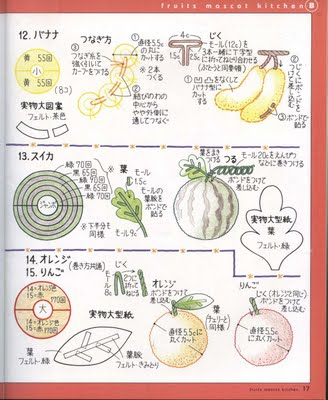 fruits mascot kitchen
12. バナナ
つなぎ方
黄 55回
小
黄 55回
(8コ)
③つなぎ糸を
強く引いて
カーブをつける
①直径5.5c
の丸に
カットする
※2本
つくる
②結びめの
中心から
やや外側に
通してつなぐ
実物大図案
フェルト・茶色
じく
モール(12c)を
3本一緒にT字型
に折ってねじり合わせる
1.5c
2.5c
①凹凸をなくして
バナナ型に
カットする
③ボンドで貼る
13. スイカ
緑70回
黒65回
緑90回
黒65回
緑70回
ジャンボ
※下半分も
同様
葉
モール
1.5c
モールの
葉脈を
ボンドで
貼る
モール9c
葉をまき
つける
つる
モール20cをえんぴつ
などに巻きつける
ボンドをつけて
差し込む
実物大型紙
葉
フェルト・緑
14. オレンジ
15. りんご
(巻き方共通)
14=オレンジ色
15=赤
170回
大
14=オレンジ色
15=赤
170回
じく
モール
8c
2つに
折って
ねじる
オレンジ
ボンドをつけて
差し込む
葉
(チェリーと
同様)
直径5.5cに
丸くカット
りんご
じく(オレンジと同じ)
ボンドをつけて
差し込む
直径5.5c
に丸くカット
実物大型紙
葉
フェルト・緑
葉脈
フェルト・きみどり
fruits mascot kitchen 17